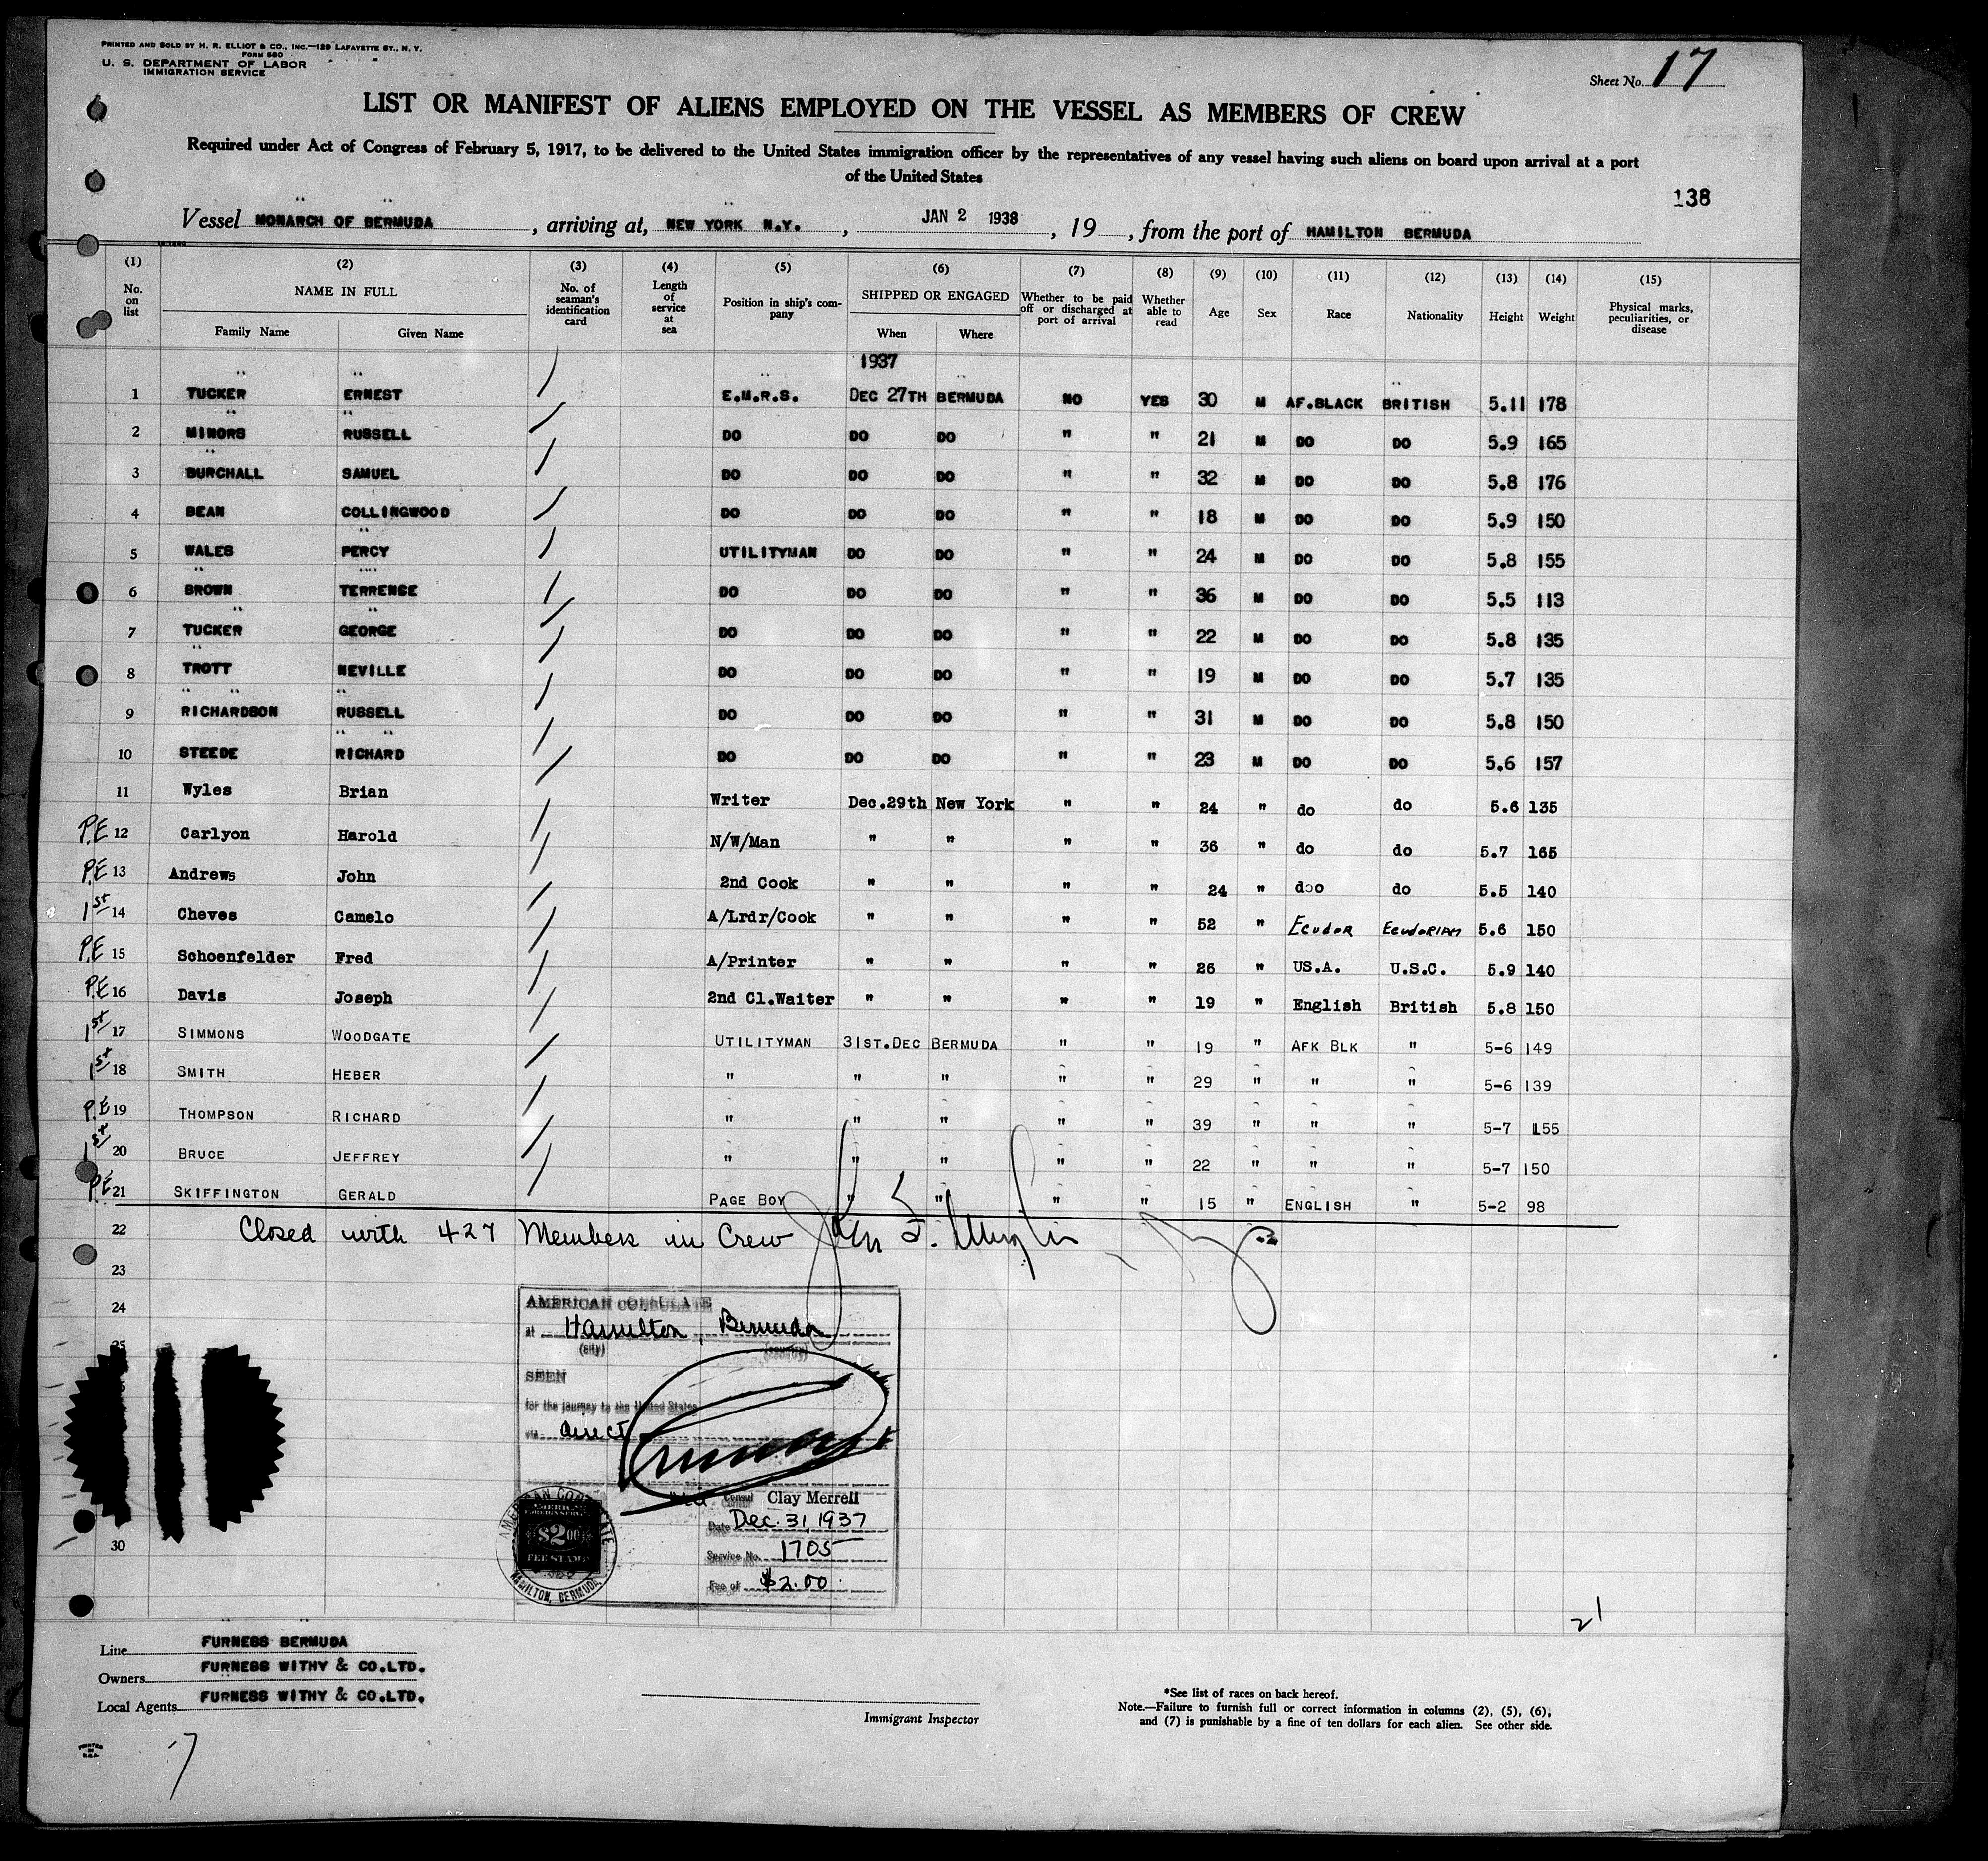 PRINTED AND SOLD BY H. R. ELLIOT & CO., INC.—129 LAFAYETTE ST., N. Y.
FORM 680
U. S. DEPARTMENT OF LABOR
IMMIGRATION SERVICE
Sheet No. 17
LIST OR MANIFEST OF ALIENS EMPLOYED ON THE VESSEL AS MEMBERS OF CREW
Required under Act of Congress of February 5, 1917, to be delivered to the United States immigration officer by the representatives of any vessel having such aliens on board upon arrival at a port
of the United States
138
Vessel MONARCH OF BERMUDA, arriving at, NEW YORK N.Y., JAN 2 1938, 19, from the port of HAMILTON BERMUDA
(1) (2) (3) (4) (5) (6) (7) (8) (9) (10) (11) (12) (13) (14) (15)
No. on list NAME IN FULL Family Name Given Name No. of seaman's identification card Length of service at sea Position in ship's company SHIPPED OR ENGAGED When Where Whether to be paid off or discharged at port of arrival Whether able to read Age Sex Race Nationality Height Weight Physical marks, peculiarities, or disease
1937
1 TUCKER ERNEST E.M.R.S. DEC 27TH BERMUDA NO YES 30 M AF.BLACK BRITISH 5.11 178
2 MINORS RUSSELL DO DO DO " " 21 M DO DO 5.9 165
3 BURCHALL SAMUEL DO DO DO " " 32 M DO DO 5.8 176
4 BEAN COLLINGWOOD DO DO DO " " 18 M DO DO 5.9 150
5 WALES PERCY UTILITYMAN DO DO " " 24 M DO DO 5.8 155
6 BROWN TERRENCE DO DO DO " " 36 M DO DO 5.5 113
7 TUCKER GEORGE DO DO DO " " 22 M DO DO 5.8 135
8 TROTT NEVILLE DO DO DO " " 19 M DO DO 5.7 135
9 RICHARDSON RUSSELL DO DO DO " " 31 M DO DO 5.8 150
10 STEEDE RICHARD DO DO DO " " 23 M DO DO 5.6 157
11 Wyles Brian Writer Dec.29th New York " " 24 " do do 5.6 135
P.E 12 Carlyon Harold N/W/Man " " " " 36 " do do 5.7 165
P.E 13 Andrews John 2nd Cook " " " " 24 " doo do 5.5 140
1st 14 Cheves Camelo A/Lrdr/Cook " " " " 52 " Ecudor Ecudorian 5.6 150
P.E 15 Schoenfelder Fred A/Printer " " " " 26 " US.A. U.S.C. 5.9 140
P.E 16 Davis Joseph 2nd Cl.Waiter " " " " 19 " English British 5.8 150
1st 17 SIMMONS WOODGATE UTILITYMAN 31ST.DEC BERMUDA " " 19 " AFK BLK " 5-6 149
1st 18 SMITH HEBER " " " " " 29 " " " 5-6 139
P.E 19 THOMPSON RICHARD " " " " " 39 " " " 5-7 155
1st 20 BRUCE JEFFREY " " " " " 22 " " " 5-7 150
P.E 21 SKIFFINGTON GERALD PAGE BOY " " " " 15 " ENGLISH " 5-2 98
22 Closed with 427 Members in Crew
23
24
25
30
AMERICAN CONSULATE
at Hamilton, Bermuda
(city) (country)
SEEN
for the journey to the United States
via direct
Consul Clay Merrell
Date Dec. 31, 1937
Service No. 1705
Fee of $2.00
AMERICAN CONSULATE
$2.00
FEE STAMP
HAMILTON, BERMUDA
21
Line FURNESS BERMUDA
Owners FURNESS WITHY & CO.LTD.
Local Agents FURNESS WITHY & CO.LTD.
Immigrant Inspector
*See list of races on back hereof.
Note.—Failure to furnish full or correct information in columns (2), (5), (6),
and (7) is punishable by a fine of ten dollars for each alien. See other side.
PRINTED
IN
U.S.A.
17